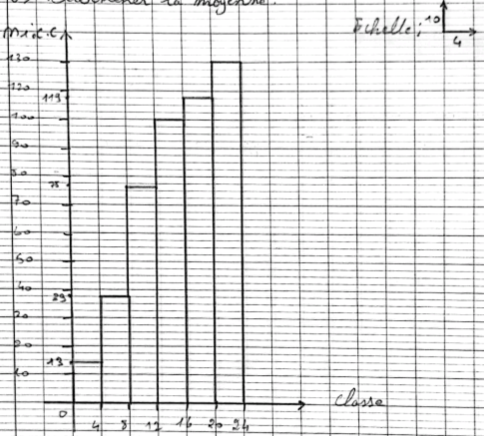 la moyenne.
Echelle; 10
4
n i c.c
130
120
119
100
90
80
70
60
50
40
39
30
20
13
10
0 4 8 12 16 20 24
Classe